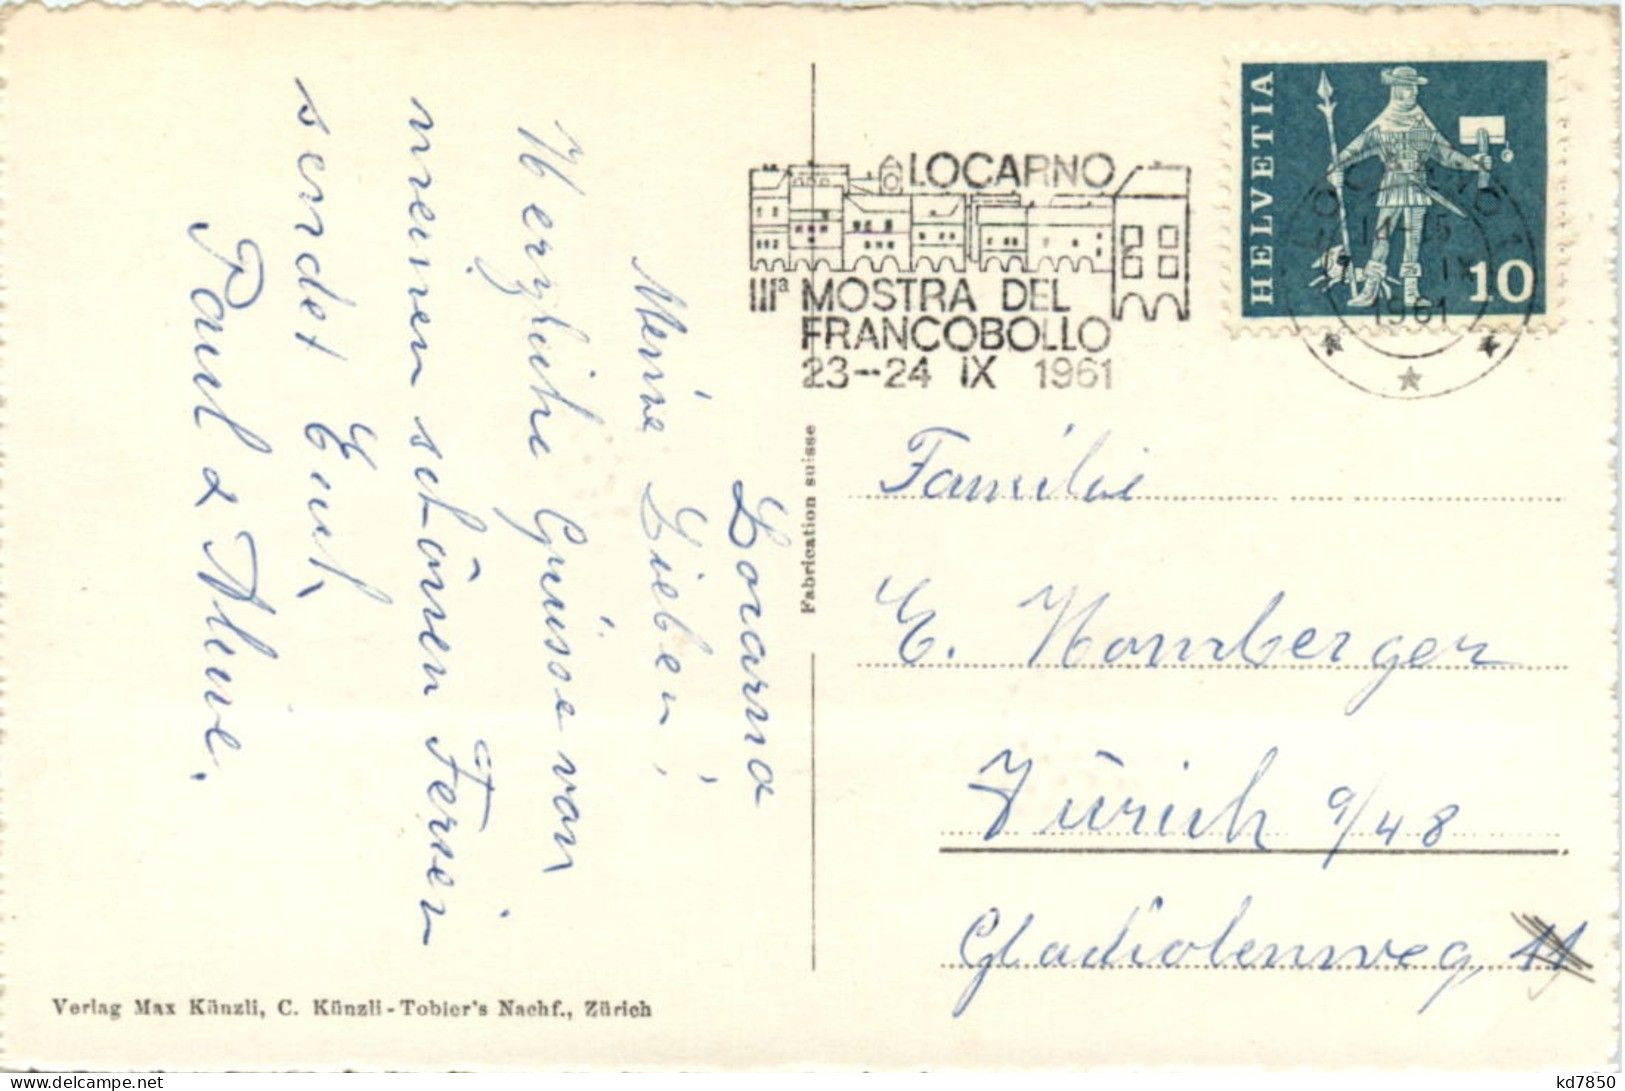 Locarno
Meine Lieben,
Herzliche Grüsse von
meinen schönen Ferien
sendet Euch
Paul & Aline.
Fabrication suisse
LOCARNO
IIIª MOSTRA DEL
FRANCOBOLLO
23--24 IX 1961
HELVETIA
10
LOCARNO 1
14-15
IX
1961
Familie
E. Homberger
Zürich 9/48
Gladiolenweg
Verlag Max Künzli, C. Künzli-Tobler's Nachf., Zürich
kd7850